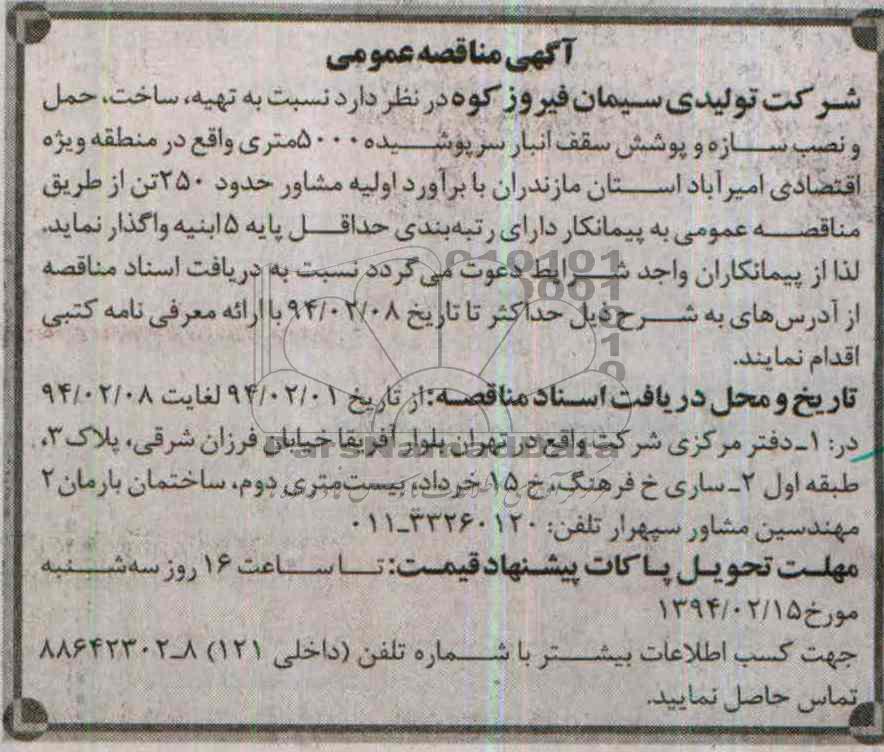 آگهی مناقصه عمومی
شرکت تولیدی سیمان فیروز کوه در نظر دارد نسبت به تهیه، ساخت، حمل
و نصب سازه و پوشش سقف انبار سرپوشیده ۵۰۰۰متری واقع در منطقه ویژه
اقتصادی امیرآباد استان مازندران با برآورد اولیه مشاور حدود ۲۵۰تن از طریق
مناقصه عمومی به پیمانکار دارای رتبه‌بندی حداقل پایه ۵ابنیه واگذار نماید.
لذا از پیمانکاران واجد شرایط دعوت می گردد نسبت به دریافت اسناد مناقصه
از آدرس‌های به شرح ذیل حداکثر تا تاریخ ۹۴/۰۲/۰۸ با ارائه معرفی نامه کتبی
اقدام نمایند.
تاریخ و محل دریافت اسناد مناقصه: از تاریخ ۹۴/۰۲/۰۱ لغایت ۹۴/۰۲/۰۸
در: ۱ـ دفتر مرکزی شرکت واقع در تهران بلوار آفریقا خیابان فرزان شرقی، پلاک ۳،
طبقه اول ۲ـ ساری خ فرهنگ، خ ۱۵ خرداد، بیست‌متری دوم، ساختمان بارمان ۲
مهندسین مشاور سپهرار تلفن: ۳۳۲۶۰۱۲۰ـ۰۱۱
مهلت تحویل پاکات پیشنهاد قیمت: تا ساعت ۱۶ روز سه‌شنبه
مورخ ۱۳۹۴/۰۲/۱۵
جهت کسب اطلاعات بیشتر با شماره تلفن (داخلی ۱۲۱) ۸ـ۸۸۶۴۲۳۰۲
تماس حاصل نمایید.
ParsNamadData